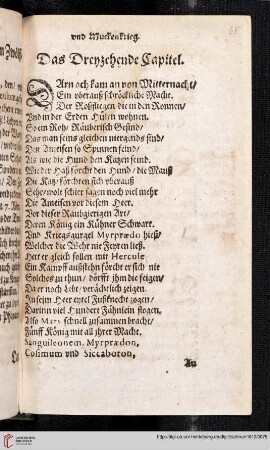 vnd Muckenkrieg.
Das Dreyzehende Capitel.
DArnach kam an von Mitternacht/
Ein vberauß schröckliche Macht.
Der Roßfliegen die in den Ronnen/
Vnd in der Erden Hülen wohnen.
Ein Roh/ Räuberisch Gesind/
Das man seins gleichen niergunds find/
Den Ameisen so Spinnen feind/
Als wie die Hund den Katzen seind.
Wie der Haß förcht den Hund/ die Mauß
Die Katz/ förchten sich vberauß
Sehr/ wol sicher sagen noch viel mehr
Die Ameisen vor diesem Heer.
Vor dieser Raubgierigen Art/
Deren König ein Kühner
Vnd Kriegsgurgel Myrprædo hieß/
Welcher die Wehr nie Feyren ließ.
Wenn er gleich sollen mit Hercule
Ein Kampff außstehn förcht er sich nie
Solches zu thun/ dörfft ihn die feigen/
Da er noch lebt/ verächtlich zeigen.
In seim Heer eytel Fußknecht zogen/
Darinn viel Hundert Fähnlein flogen.
Also Mars schnell zusammen bracht/
Fünff König mit all ihrer Macht.
Sanguileonem, Myrprædon,
Cosimum vnd Siccaboron,
An